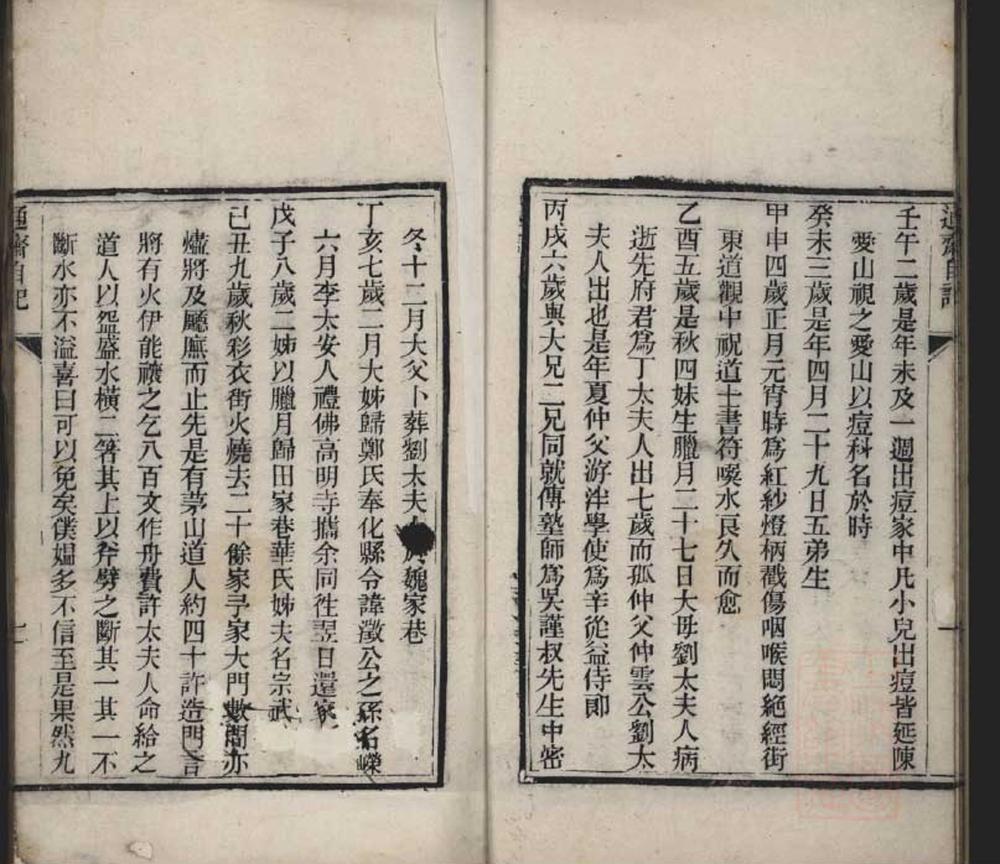 通齋自記
壬午二歲是年未及一週出痘家中凡小兒出痘皆延陳
愛山視之愛山以痘科名於時
癸未三歲是年四月二十九日五弟生
甲申四歲正月元宵時為紅紗燈柄戳傷咽喉悶絕經街
東道觀中祝道士書符噀水良久而愈
乙酉五歲是秋四妹生臘月二十七日大母劉太夫人病
逝先府君為丁太夫人出七歲而孤仲父仲雲公劉太
夫人出也是年夏仲父游泮學使為辛從益侍郎
丙戌六歲與大兄二兄同就傳塾師為吳謹叔先生中密
一
冬十二月大父卜葬劉太夫 魏家巷
丁亥七歲二月大姊歸鄭氏奉化縣令諱澂公之孫名嶸
六月李太安人禮佛高明寺攜余同徃翌日還家
戊子八歲二姊以臘月歸田家巷華氏姊夫名宗武
己丑九歲秋彩衣街火燒去二十餘家予家大門數間亦
燼將及廳廡而止先是有茅山道人約四十許造門言
將有火伊能禳之乞八百文作舟費許太夫人命給之
道人以盌盛水橫二箸其上以斧劈之斷其一其一不
斷水亦不溢喜曰可以免矣僕媼多不信至是果然九
通齋自記